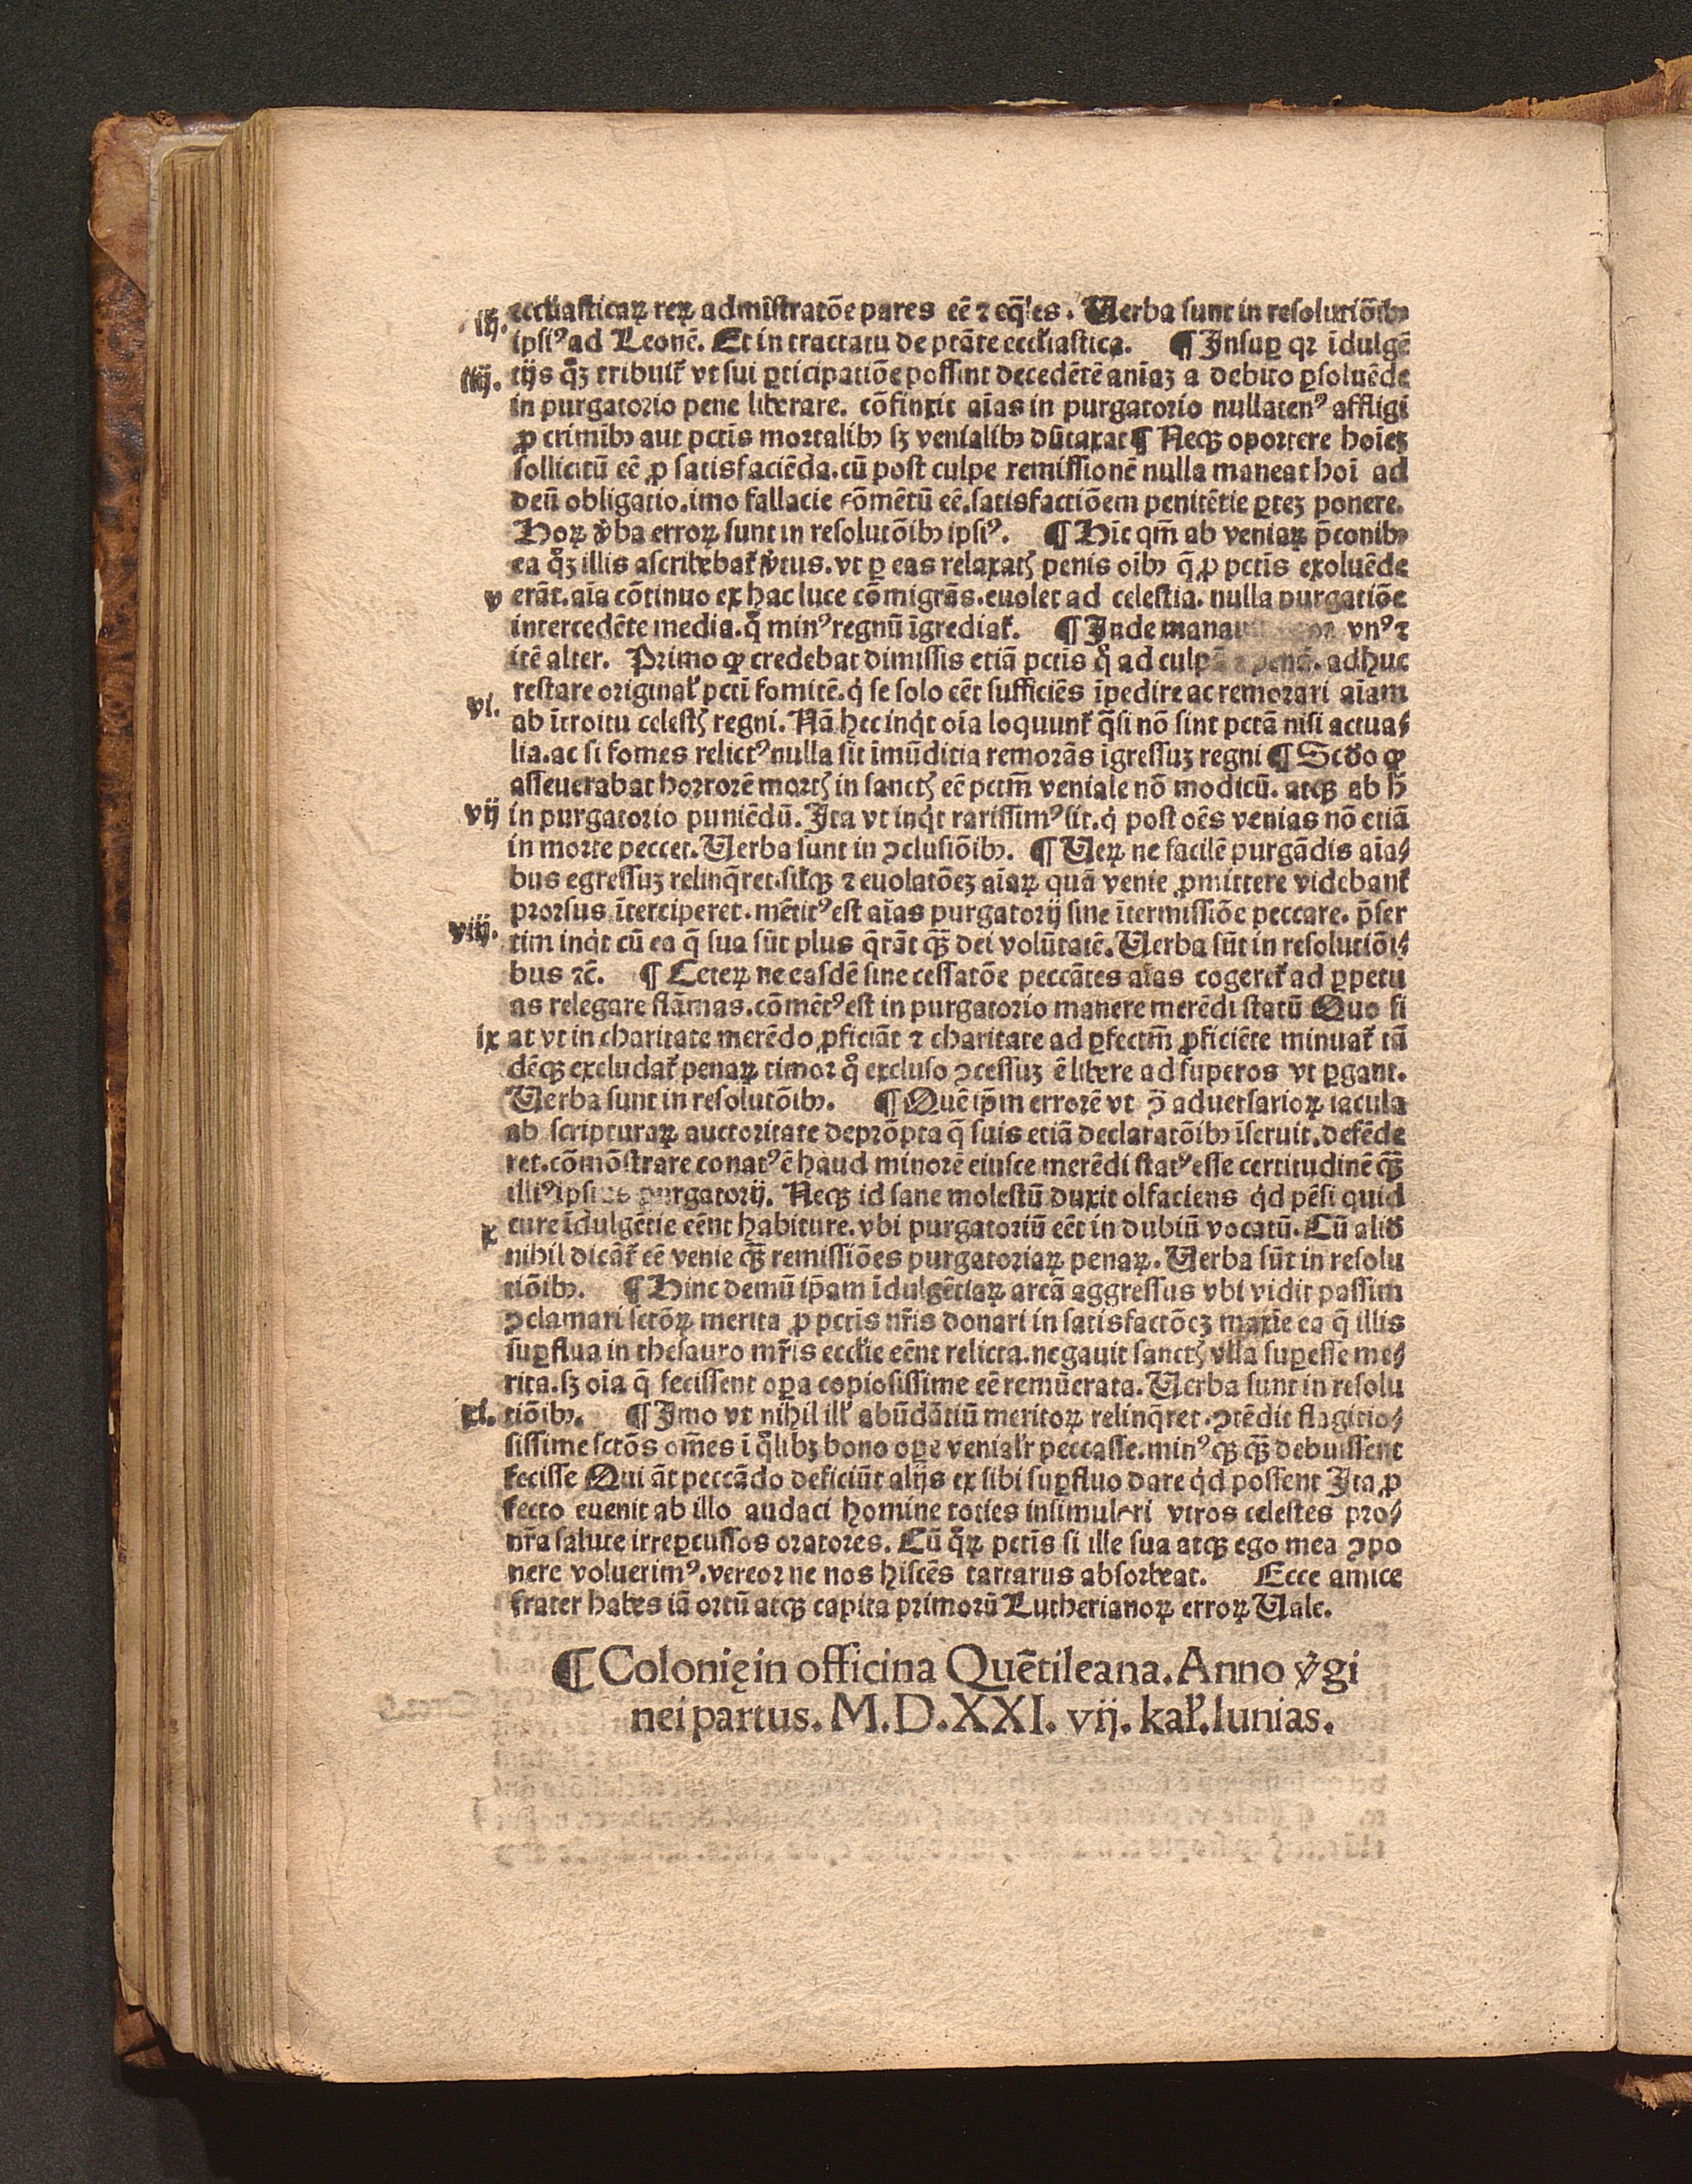 iij. eccl̄iasticaꝝ reꝝ admīstratōe pares eē ⁊ eq̄les. Uerba sunt in resolutiōibꝫ
ipsiꝰ ad Leonē. Et in tractatu de ptāte eccl̄iastica. ¶ Insuꝑ qꝛ īdulgē
iiij. tijs qͦꝫ tribuit᷑ vt sui ꝑticipatiōe possint decedētē aniāꝫ a debito ꝑsoluēde
in purgatorio pene liberare. cōfinxit aīas in purgatorio nullatenꝰ affligi
ꝓ crimībꝫ aut pctīs mortalibꝫ sꝫ venialibꝫ dūtaxat ¶ Necꝫ oportere hoīeꝫ
sollicitū eē ꝓ satisfaciēda. cū post culpe remissionē nulla maneat hoī ad
deū obligatio. imo fallacie cōmētū eē. satisfactiōem penitētie ꝑteꝫ ponere.
Hoꝝ v̄ba erroꝝ sunt in resolutōibꝫ ipsiꝰ. ¶ Hīc qm̄ ab veniaꝝ p̄conibꝫ
ea qͦꝫ illis ascribebat᷑ v̓tus. vt ꝑ eas relaxatꝭ penis oībꝫ q̄ ꝓ pctīs exoluēde
v erāt. aīa cōtinuo ex hac luce cōmigrās. euolet ad celestia. nulla purgatiōe
intercedēte media. qͦ minꝰ regnū īgrediat᷑. ¶ Inde manauit vnꝰ ⁊
itē alter. Primo ꝙ credebat dimissis etiā pctīs qͦ ad culpā ⁊ penā. adhuc
vi. restare original᷑ pcti fomitē. q̇ se solo eēt sufficiēs īpedire ac remorari aīam
ab ītroitu celestꝭ regni. Nā hec inq̇t oīa loquunt᷑ q̄si nō sint pctā nisi actua⸗
lia. ac si fomes relictꝰ nulla sit īmūditia remorās īgressuꝫ regni ¶ Scd̄o ꝙ
asseuerabat horrorē mortꝭ in sanctꝭ eē pctm̄ veniale nō modicū. atcꝫ ab h̄
vij in purgatorio puniēdū. Ita vt inq̇t rarissimꝰ sit. q̇ post oēs venias nō etiā
in morte peccet. Uerba sunt in ꝯclusiōibꝫ. ¶ Ueꝝ ne facilē purgādis aīa⸗
bus egressuꝫ relinq̄ret. sil᷑cꝫ ⁊ euolatōeꝫ aīaꝝ quā venie ꝓmittere videbant᷑
viij. prorsus īterciperet. mētitꝰ est aīas purgatorij sine ītermissiōe peccare. p̄ser
tim inq̇t cū ea q̄ sua sūt plus q̄rāt qꝫ̄ dei volūtatē. Uerba sūt in resolutiōi⸗
bus ⁊c̄. ¶ Ceteꝝ ne easdē sine cessatōe peccātes aīas cogeret᷑ ad ꝑpetu
as relegare flāmas. cōmētꝰ est in purgatorio manere merēdi statū Quo fi
ix at vt in charitate merēdo ꝓficiāt ⁊ charitate ad ꝑfectm̄ ꝓficiēte minuat᷑ tā
dēcꝫ excludat᷑ penaꝝ timor qͦ excluso ꝯcessuꝫ ē libere ad superos vt ꝑgant.
Uerba sunt in resolutōibꝫ. ¶ Quē ip̄m errorē vt ꝯ̄ aduersarioꝝ iacula
ab scripturaꝝ auctoritate deprōpta q̄ suis etiā declaratōibꝫ īseruit. defēde
ret. cōmōstrare conatꝰ ē haud minorē eiusce merēdi statꝰ esse certitudinē qꝫ̄
illiꝰ ipsius purgatorij. Necꝫ id sane molestū duxit olfaciens q̇d pēsi quid
x ture īdulgētie eēnt habiture. vbi purgatoriū eēt in dubiū vocatū. Cū aliḋ
nihil dicāt᷑ eē venie qꝫ̄ remissiōes purgatoriaꝝ penaꝝ. Uerba sūt in resolu
tiōibꝫ. ¶ Hinc demū ip̄am īdulgētiaꝝ arcā aggressus vbi vidit passim
ꝯclamari sctōꝝ merita ꝓ pctīs nr̄is donari in satisfactōeꝫ maxīe ea q̄ illis
suꝑflua in thesauro mr̄is eccl̄ie eēnt relicta. negauit sanctꝭ vlla suꝑesse me⸗
rita. sꝫ oīa q̄ fecissent oꝑa copiosissime eē remūerata. Uerba sunt in resolu
xi. tiōibꝫ. ¶ Imo vt nihil ill᷑ abūdātiū meritoꝝ relinq̄ret. ꝯtēdit flagitio⸗
sissime sctōs om̄es ī qͦlibꝫ bono oꝑe venial᷑r peccasse. minꝰcꝫ qꝫ̄ debuissent
fecisse Qui āt peccādo deficiūt alijs ex sibi suꝑfluo dare q̇d possent Ita ꝓ
fecto euenit ab illo audaci homine toties insimulari vtros celestes pro⸗
nr̄a salute irreꝑcussos oratores. Cū qͦꝝ pctīs si ille sua atcꝫ ego mea ꝯpo
nere voluerimꝰ. vereor ne nos hiscēs tartarus absorbeat. Ecce amice
frater habes iā ortū atcꝫ capita primorū Lutherianoꝝ erroꝝ Uale.
¶ Colonię in officina Quētileana. Anno v̓gi
nei partus. M.D.XXI. vij. kal᷑. Iunias.